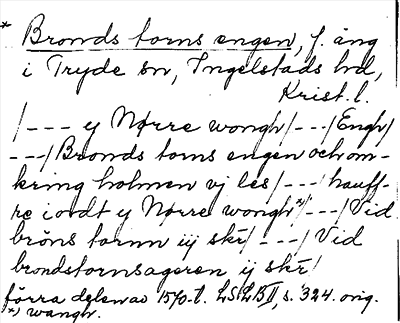 * Bronds torns engen, f. äng
i Tryde sn, Ingelstads hd,
Krist. l.
/--- y Nørre wongh/---/Engh/
---/Bronds torns engen och om-
kring holmen vj les/---/hauff-
re iordt y Nørre wongh*)/---/Vid
bröns tornn iij skr/---/Vid
brondstornsageren ij skr/
förra delen av 1570-t. LSLB II, s. 324. orig.
*) wangh.